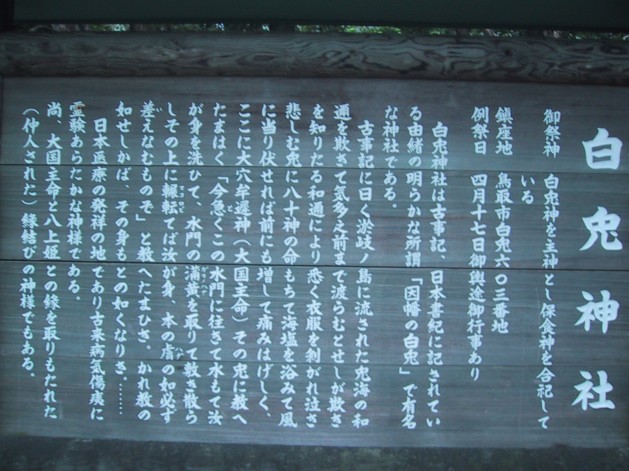 白兎神社
御祭神　白兎神を主神とし保食神を合祀して
いる
鎮座地　鳥取市白兎六〇三番地
例祭日　四月十七日御輿渡御行事あり
白兎神社は古事記、日本書紀に記されてい
る由緒の明らかな所謂「因幡の白兎」で有名
な神社である。
古事記に曰く淤岐ノ島に流された兎海の和
通を欺きて気多之前まで渡らむとせしが欺き
を知りたる和通により悉く衣服を剥がれ泣き
悲しむ兎に八十神の命もちて海塩を浴みて風
に当り伏せれば前にも増して痛みはげしく、
ここに大穴牟遅神（大国主命）その兎に教へ
たまはく「今急くこの水門に往きて水もて汝
が身を洗ひて、水門の蒲黄を取りて敷き散ら
しその上に輾転てば汝が身、本の膚の如必ず
差えなむものぞ」と教へたまひき、かれ教の
如せしかば、その身もとの如くなりき。……
日本医療の発祥の地であり古来病気傷痍に
霊験あらたかな神様である。
尚、大国主命と八上姫との縁を取りもたれた
（仲人された）縁結びの神様でもある。